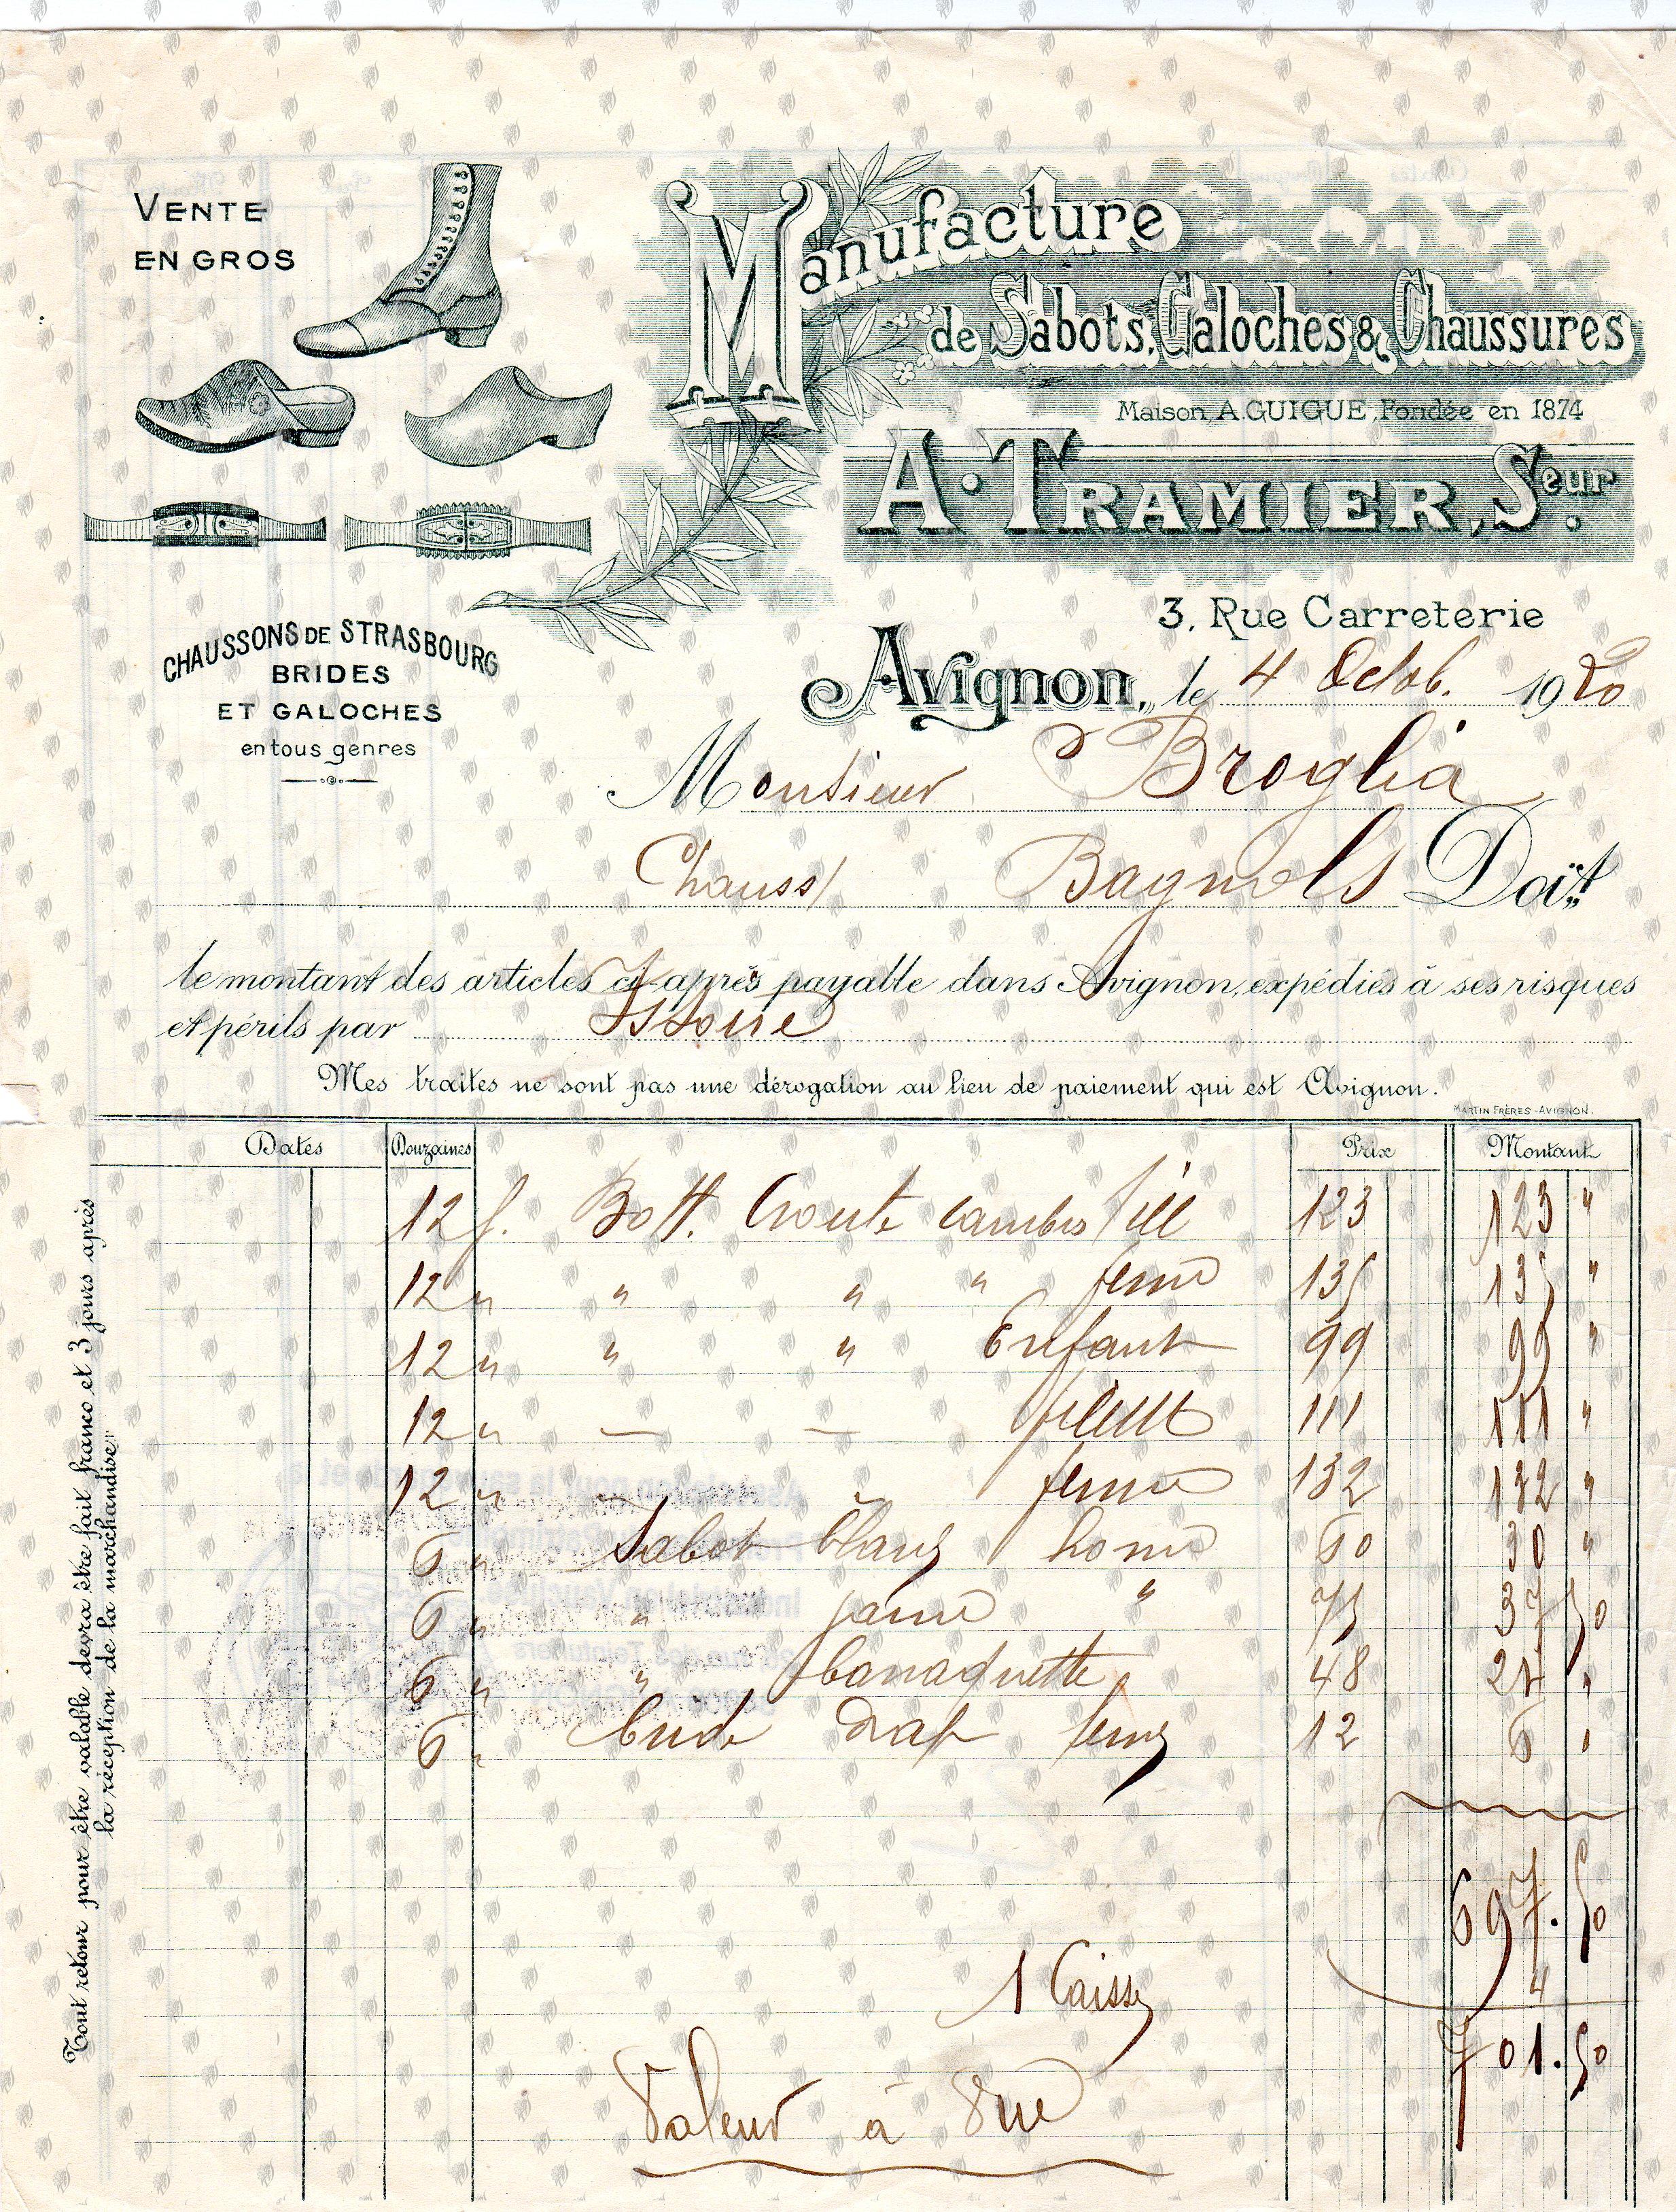 VENTE
EN GROS
Manufacture
de Sabots, Galoches & Chaussures
Maison A. GUIGUE, Fondée en 1874
A. TRAMIER, Seur.
3, Rue Carreterie
CHAUSSONS DE STRASBOURG
BRIDES
ET GALOCHES
en tous genres
Avignon, le 4 Octob. 1920
Monsieur Broglia
Chauss/ Bagnols Doit
le montant des articles ci-après payable dans Avignon, expédiés à ses risques
et périls par
Mes traites ne sont pas une dérogation au lieu de paiement qui est Avignon.
MARTIN FRÈRES - AVIGNON.
Dates Douzaines Prix Montant
12 f. Bott. Croute cambs fill 123 123 "
12 " " " " feme 135 135 "
12 " " " Enfant 99 99 "
12 " — — fillette 111 111 "
12 " femme 132 132 "
6 " Sabot blanc home 60 30 "
6 " " jaune " 75 37 50
6 " " 48 24 "
6 " Bride drap 12 6 "
697.50
1 Caisse 4
701.50
Valeur à Vue
Tout retour pour être valable devra être fait franco et 3 jours après
la réception de la marchandise